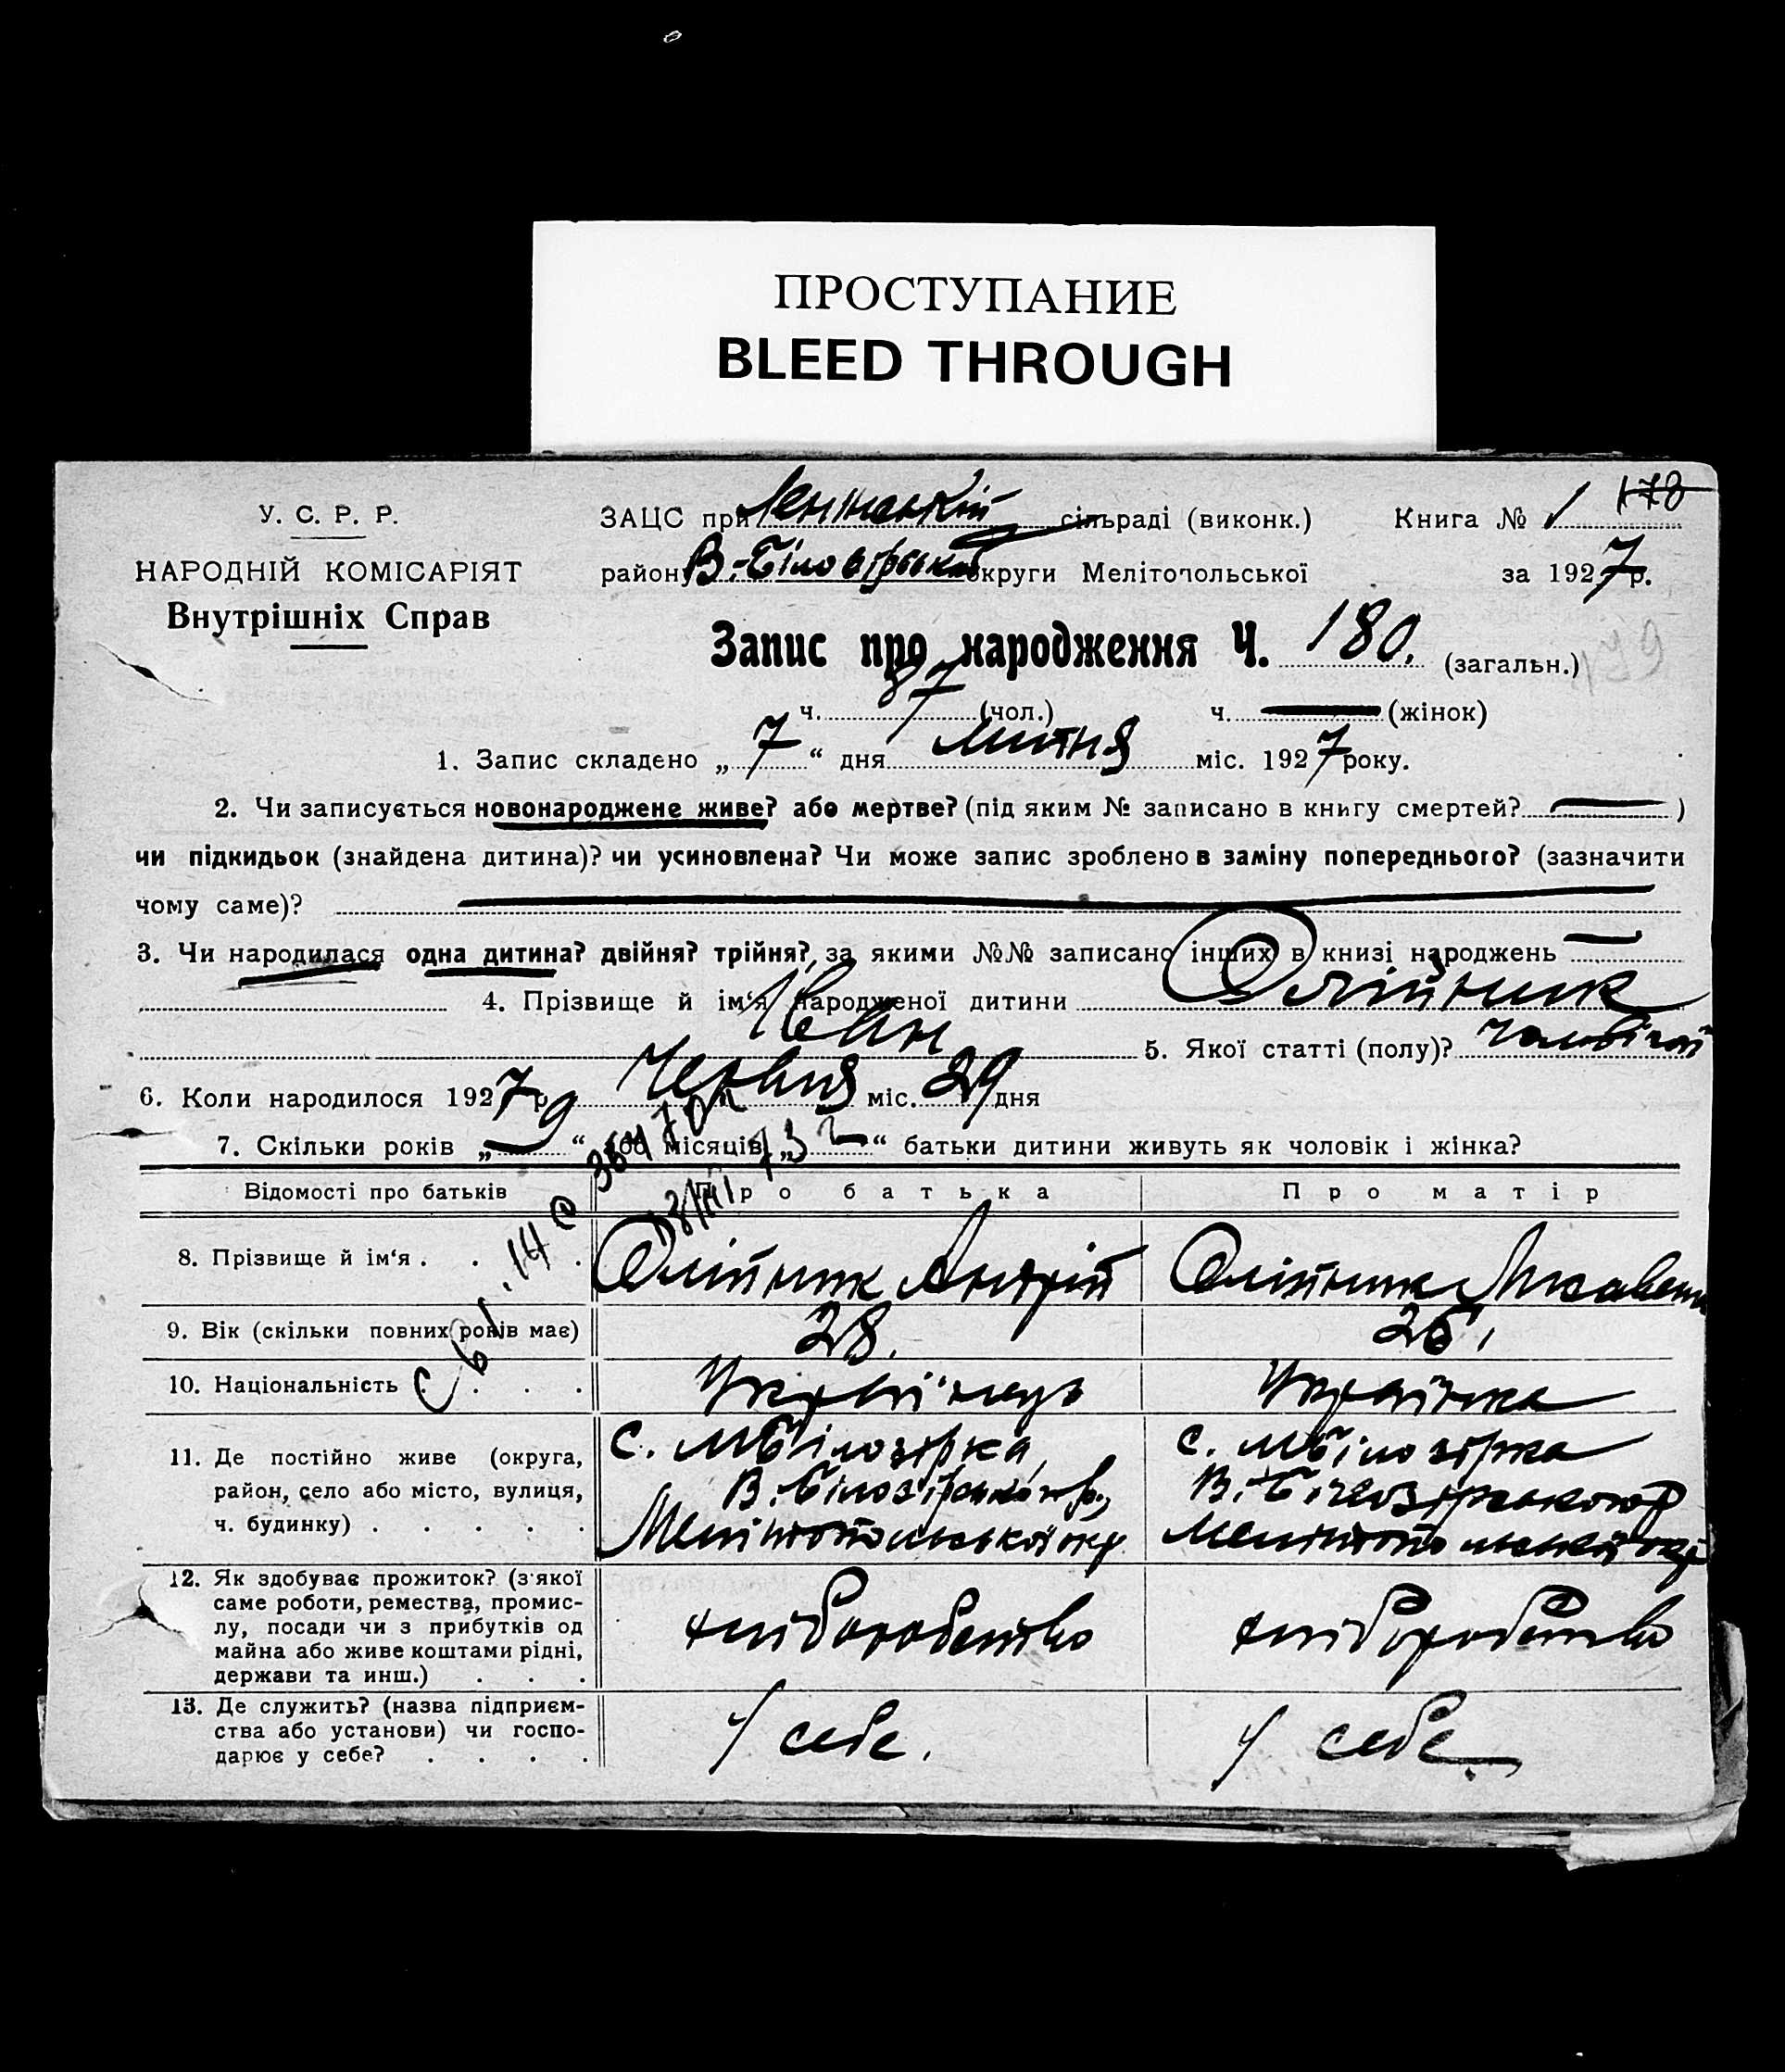 ПРОСТУПАНИЕ
BLEED THROUGH
178
У. С. Р. Р.
НАРОДНІЙ КОМІСАРІЯТ
Внутрішніх Справ
ЗАЦС при Ленінській сільраді (виконк.) Книга № 1
район В.-Білозірської округи Мелітопольської за 1927 р.
Запис про народження Ч. 180. (загальн.) 179
ч. 87 (чол.) ч. (жінок)
1. Запис складено „ 7 “ дня липня міс. 1927 року.
2. Чи записується новонароджене живе? або мертве? (під яким № записано в книгу смертей? )
чи підкидьок (знайдена дитина)? чи усиновлена? Чи може запис зроблено в заміну попереднього? (зазначити
чому саме)?
3. Чи народилася одна дитина? двійня? трійня?, за якими №№ записано інших в книзі народжень
4. Прізвище й ім‘я народженої дитини Олійник
Іван 5. Якої статті (полу)? чоловічої
6. Коли народилося 1927 р. Червня міс. 29 дня
7. Скільки років „ 9 “ або місяців „ “ батьки дитини живуть як чоловік і жінка?
Відомості про батьків Про батька Про матір
8. Прізвище й ім‘я . . . Олійник Андрій Олійник Лизавета
9. Вік (скільки повних років має) 28. 26.
10. Національність . . . . Українець Українка
11. Де постійно живе (округа, с. М Білозірка, с. М Білозірка
район, село або місто, вулиця, В.-Білозірського р., В.-Білозірського р
ч. будинку) . . . . . Мелітопольської окр Мелітопольської окр
12. Як здобуває прожиток? (з якої
саме роботи, ремества, промис-
лу, посади чи з прибутків од хліборобство хліборобство
майна або живе коштами рідні,
держави та инш.) . . .
13. Де служить? (назва підприєм-
ства або установи) чи госпо- У себе. У себе
дарює у себе? . . . .